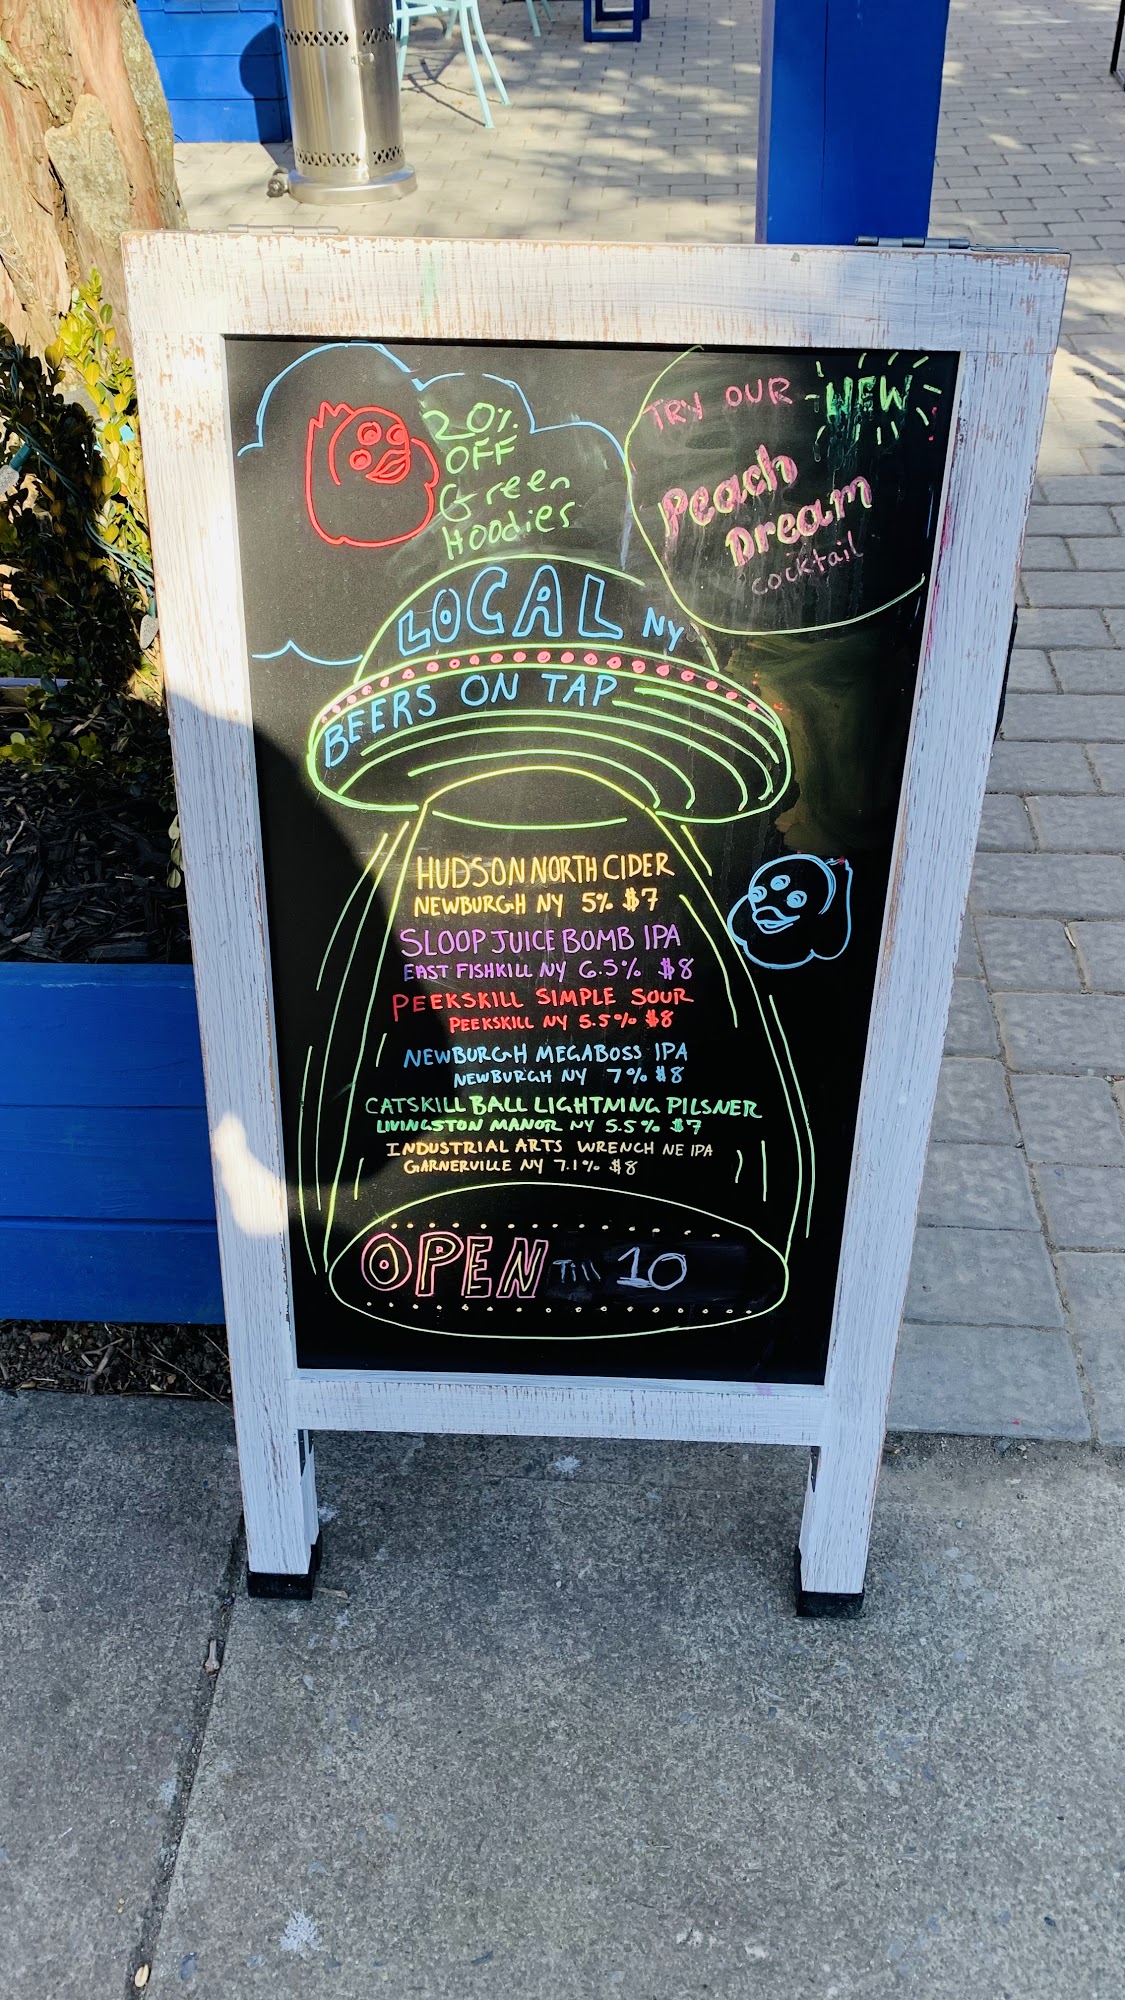 20%
OFF
Green
Hoodies
TRY OUR NEW
Peach
Dream
cocktail
LOCAL NY
BEERS ON TAP
HUDSON NORTH CIDER
NEWBURGH NY 5% $7
SLOOP JUICE BOMB IPA
EAST FISHKILL NY 6.5% $8
PEEKSKILL SIMPLE SOUR
PEEKSKILL NY 5.5% $8
NEWBURGH MEGABOSS IPA
NEWBURGH NY 7% $8
CATSKILL BALL LIGHTNING PILSNER
LIVINGSTON MANOR NY 5.5% $7
INDUSTRIAL ARTS WRENCH NE IPA
GARNERVILLE NY 7.1% $8
OPEN Till 10